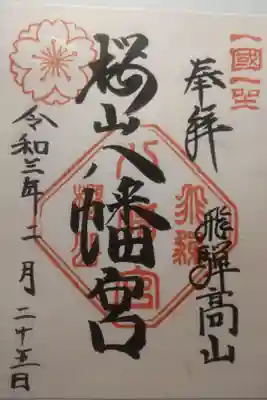 一國一宮
奉拝
飛騨高山
桜山八幡宮
令和三年二月二十五日